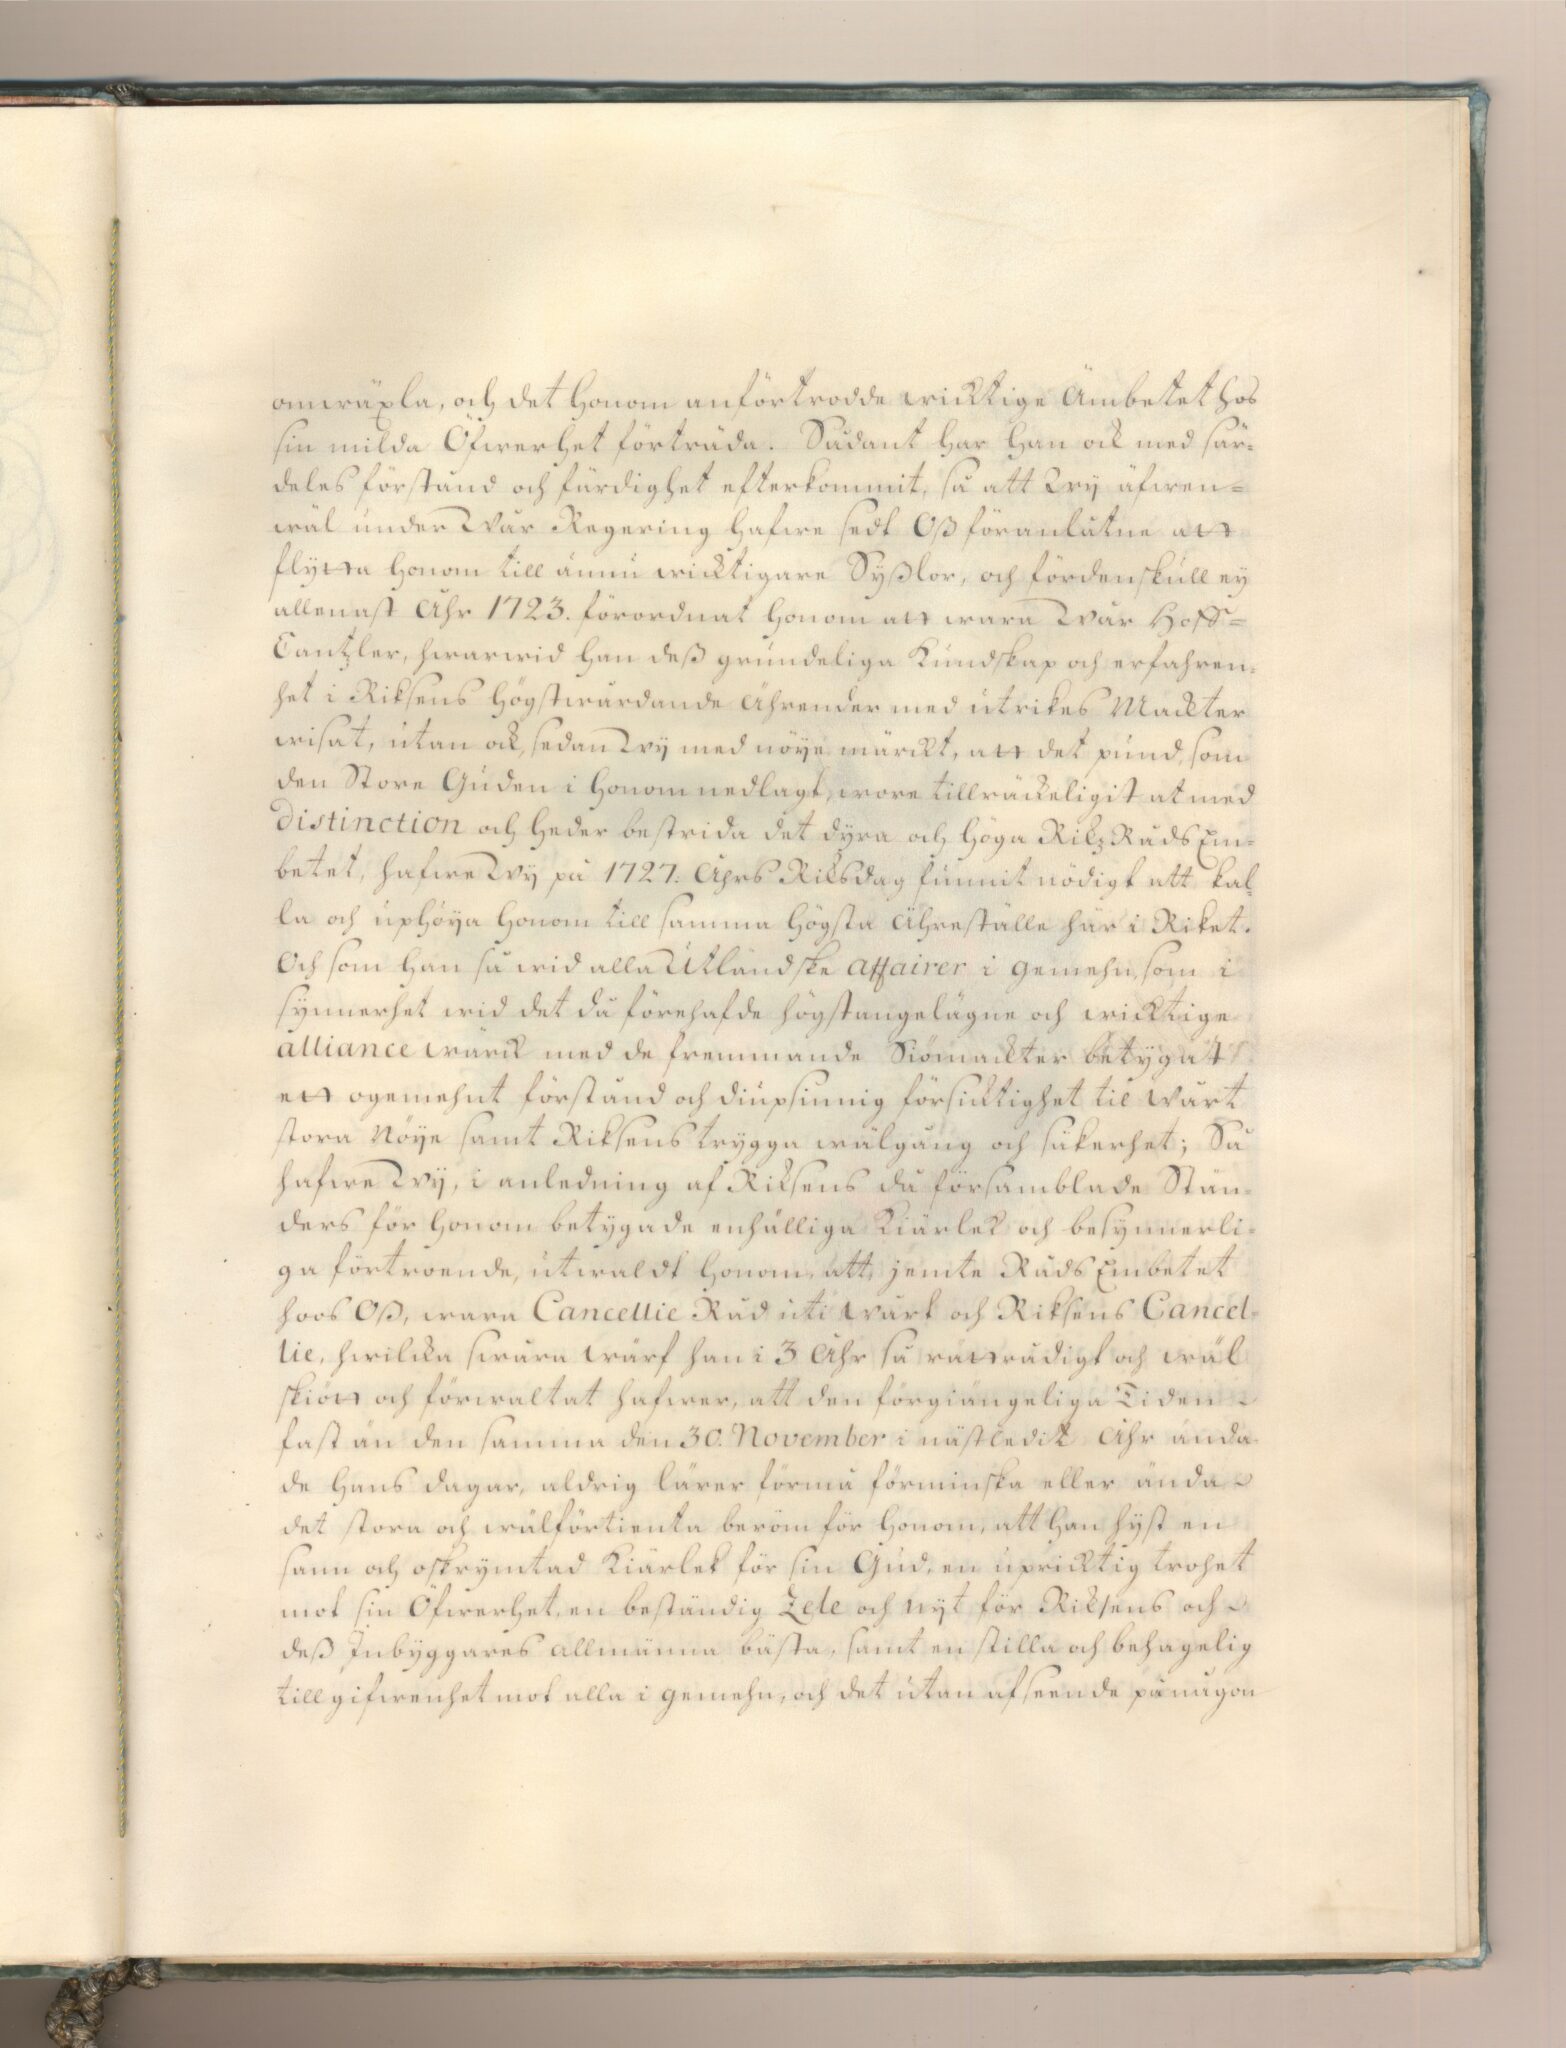 omwäxla, och det honom anförtrodde wicktige Ämbetet hos
sin milda Öfwerhet förträda. Sådant har han ock med sär-
deles förstånd och färdighet efterkommit, så att Wy äfwen-
wäl under Wår Regering hafwe sedt Oß föranlåtne att
flytta honom till ännu wicktigare Syßlor, och fördenskull ey
allenast Åhr 1723. förordnat honom att wara Wår Hoff-
Cantzler, hwarwid han deß grundeliga Kundskap och erfahren-
het i Riksens högstwårdande Ährender med utrikes Mackter
wisat, utan ock, sedan Wy med nöye märckt, att det pund, som
den Store Guden i honom nedlagt, wore tillräckeligit at med
distinction och heder bestrida det dyra och höga Rikz Råds Em-
betet, hafwe Wy på 1727. Åhrs Riksdag funnit nödigt att kal-
la och uphöya honom till samma högsta Ähreställe här i Riket.
Och som han så wid alla Utländske affairer i gemehn, som i
synnerhet wid det då förehafde högstangelägne och wicktige
alliance wärck med de fremmande Siömackter betygat
ett ogemehnt förstånd och diupsinnig försicktighet til Wårt
stora Nöye samt Riksens trygga wälgång och säkerhet; Så
hafwe Wy, i anledning af Riksens då församblade Stän-
ders för honom betygade enhälliga Kiärlek och besynnerli-
ga förtroende, utwaldt honom att, jemte Råds Embetet
hoos Oß, wara Cancellie Råd uti Wårt och Riksens Cancel-
lie, hwilcka swåra wärf han i 3 Åhr så rättrådigt och wäl
skiött och förwaltat hafwer, att den förgiängeliga Tiden
fast än den samma den 30. November i nästledit Åhr ända-
de hans dagar, aldrig lärer förmå förminska eller ända
det stora och wälförtienta beröm för honom, att han hyst en
sann och oskrymtad Kiärlek för sin Gud, en upricktig trohet
mot sin Öfwerhet, en beständig Zele och nyt för Riksens och
deß Inbyggares allmänna bästa, samt en stilla och behagelig
tillgifwenhet mot alla i gemehn, och det utan afseende på någon